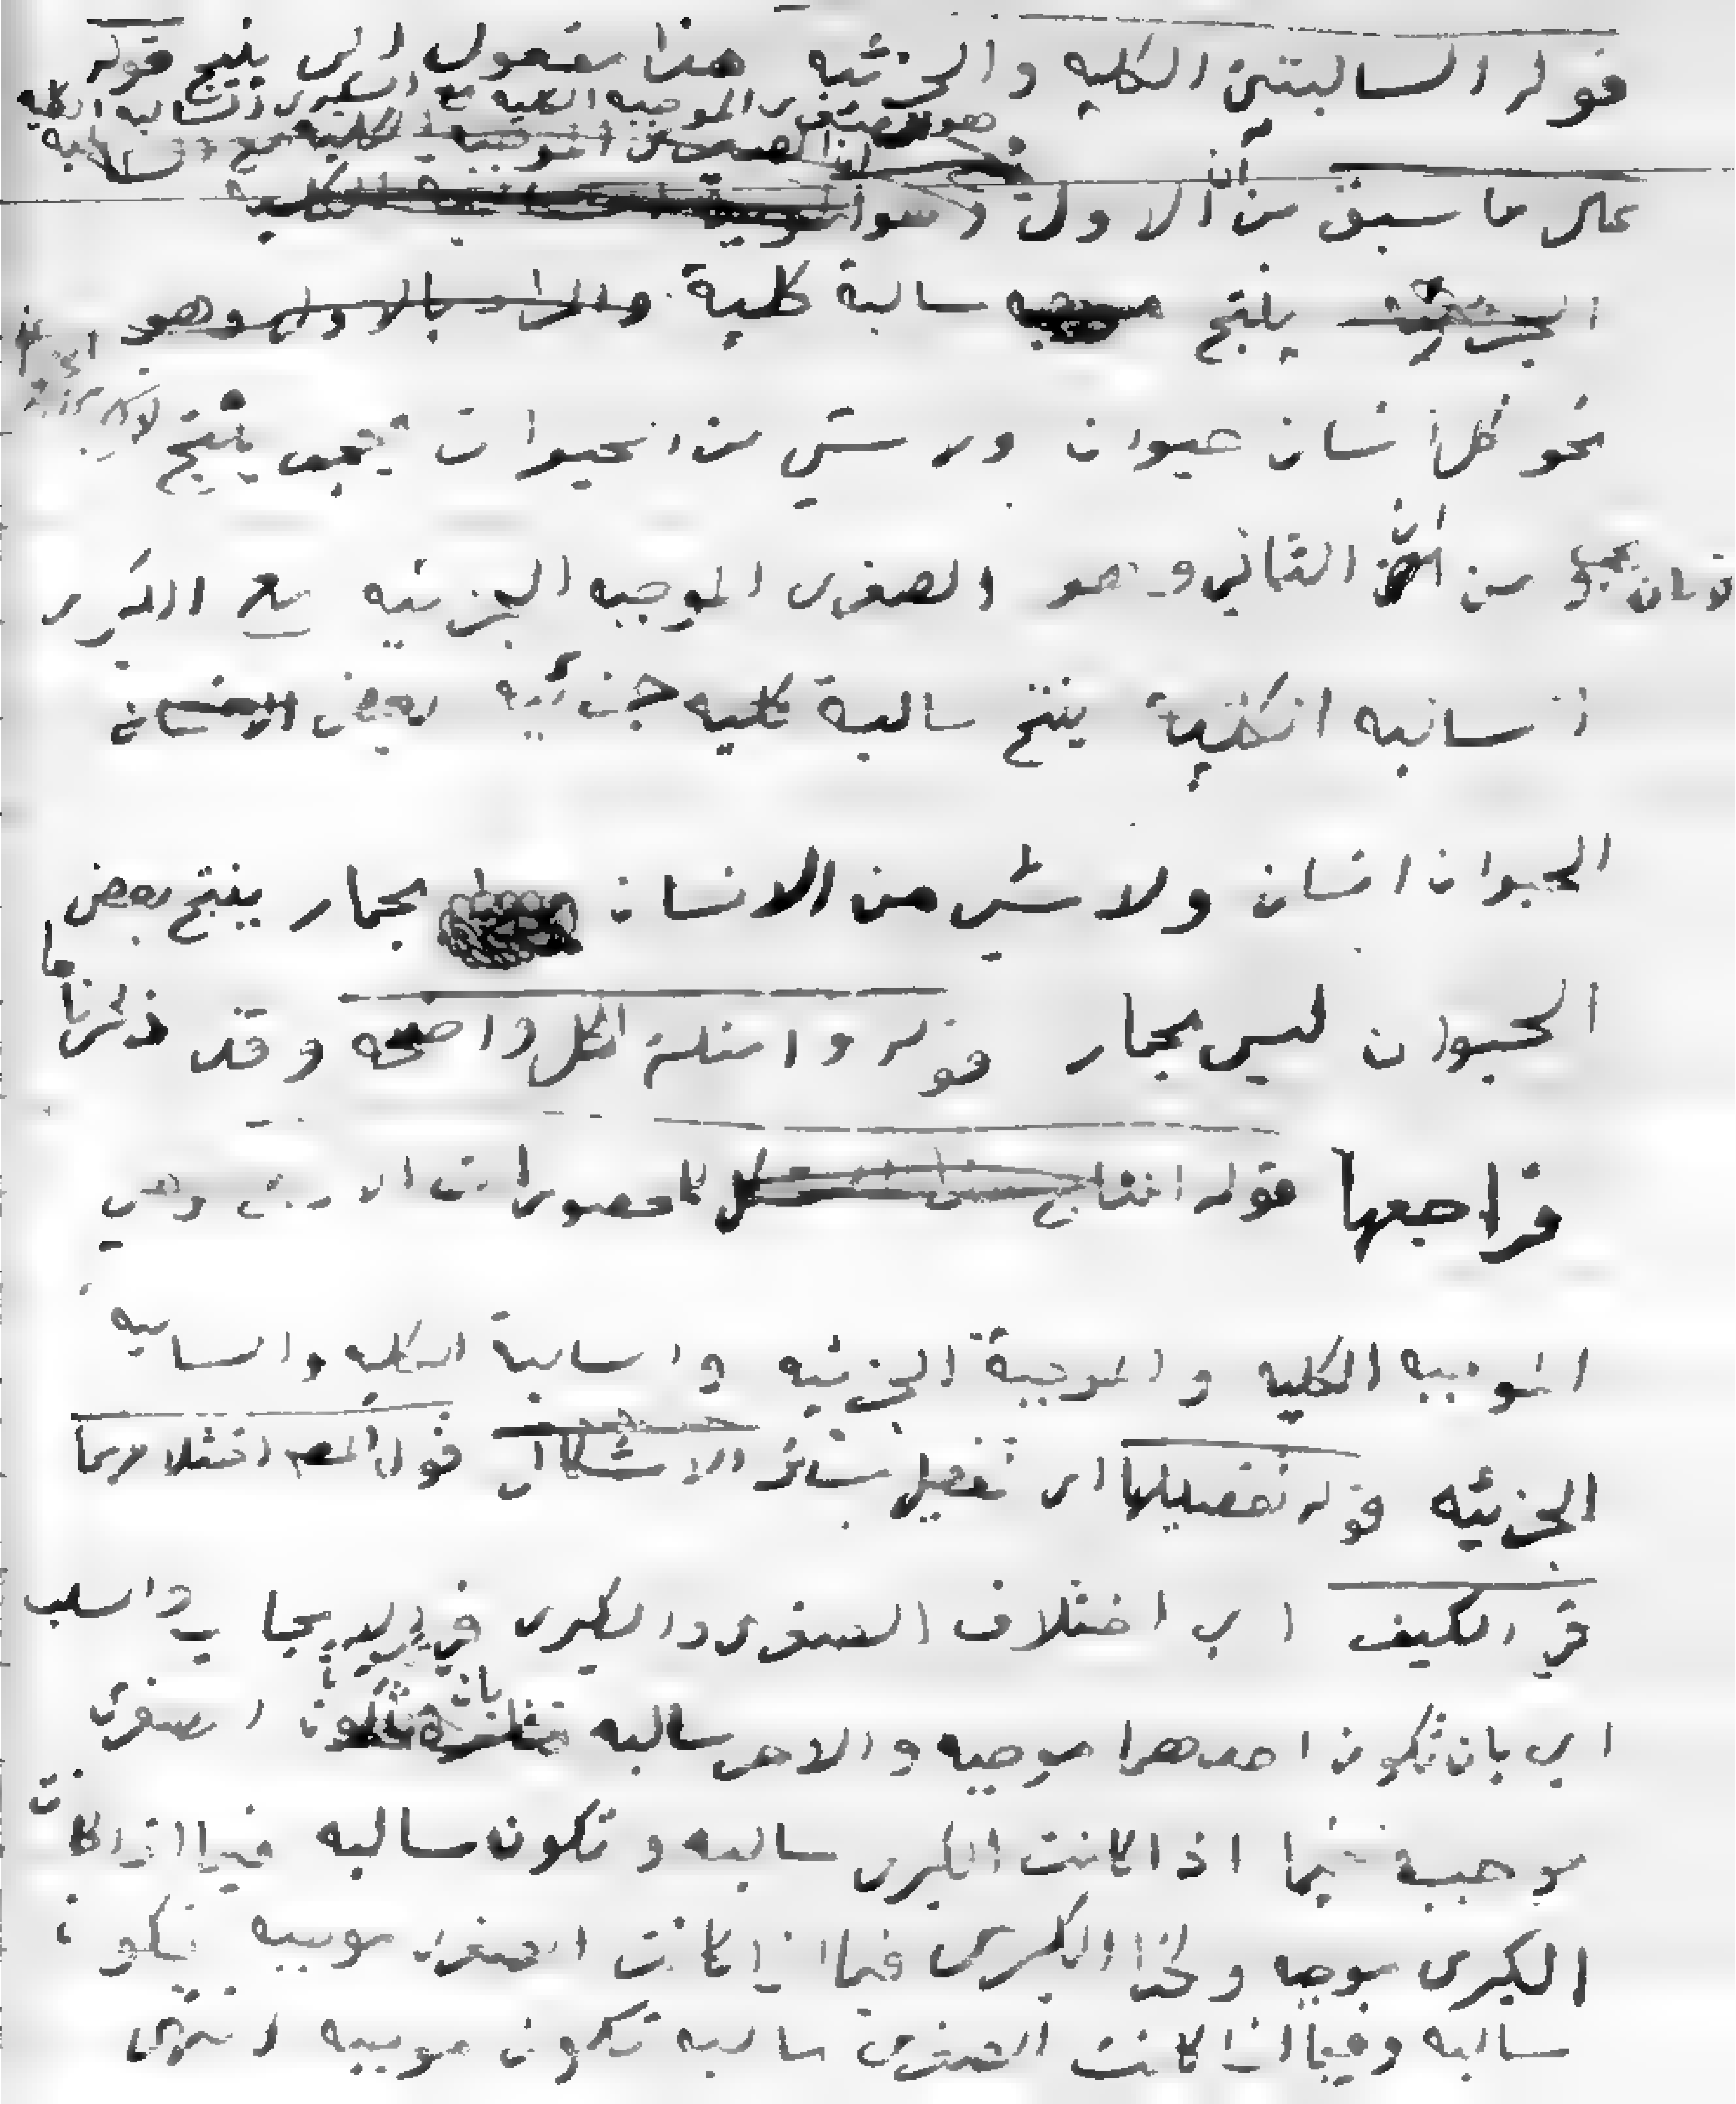 قوله السالبتين الكليه والجزئيه هذا مفعول الى ينتج قوله
وهو الصغرى الموجبه الكليه مع الكبرى السالبه الكليه
على ما سبق من أن الاول
ينتج سالبة كلية
نحو كل انسان حيوان ولا شي من الحيوان ينتج لا شي
من أن الثاني وهو الصغرى الموجبه الجزئيه مع الكبرى
السالبه الكلية ينتج سالبة جزئيه بعض
الحيوان انسان ولا شي من الانسان بحمار ينتج بعض
الحيوان ليس بحمار قوله وامثلة الكل واضحه وقد ذكرناها
فراجعها قوله انتاج المحصورات الاربع وهي
الموجبه الكليه والموجبة الجزئيه والسالبة الكليه والسالبه
الجزئيه قوله تفصيلها اى تفصيل سائر الاشكال قول المص اختلافهما
في الكيف اي اختلاف الصغرى والكبرى في الايجاب والسلب
اي بان تكون احدهما موجبه والاخرى سالبه بان تكون الصغرى
موجبة فيما اذا كانت الكبرى سالبه وتكون سالبه فيما اذا كانت
الكبرى موجبه وكذا الكبرى فيما اذا كانت الصغرى موجبه تكون
سالبه وفيما اذا كانت الصغرى سالبه تكون موجبه انتهى